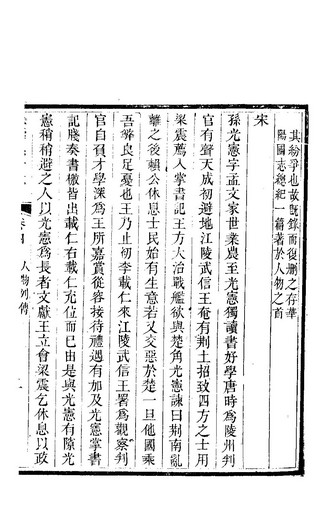 其紛爭也故旣錄而復刪之存華
陽國志總紀一篇著於人物之首
宋
孫光憲字孟文家世業農至光憲獨讀書好學唐時為陵州判
官有聲天成初避地江陵武信王奄有荆土招致四方之士用
梁震薦入掌書記王方大治戰艦欲與楚角光憲諫曰荆南亂
離之後賴公休息士民始有生意若又交惡於楚一旦他國乘
吾弊良足憂也王乃止初李載仁來江陵武信王署為觀察判
官自負才學深為王所嘉賞從容接待禮遇有加及光憲掌書
記牋奏書檄皆出載仁右載仁充位而已由是與光憲有隙光
憲稍稍避之人以光憲為長者文獻王立會梁震乞休息以政
人物列傳